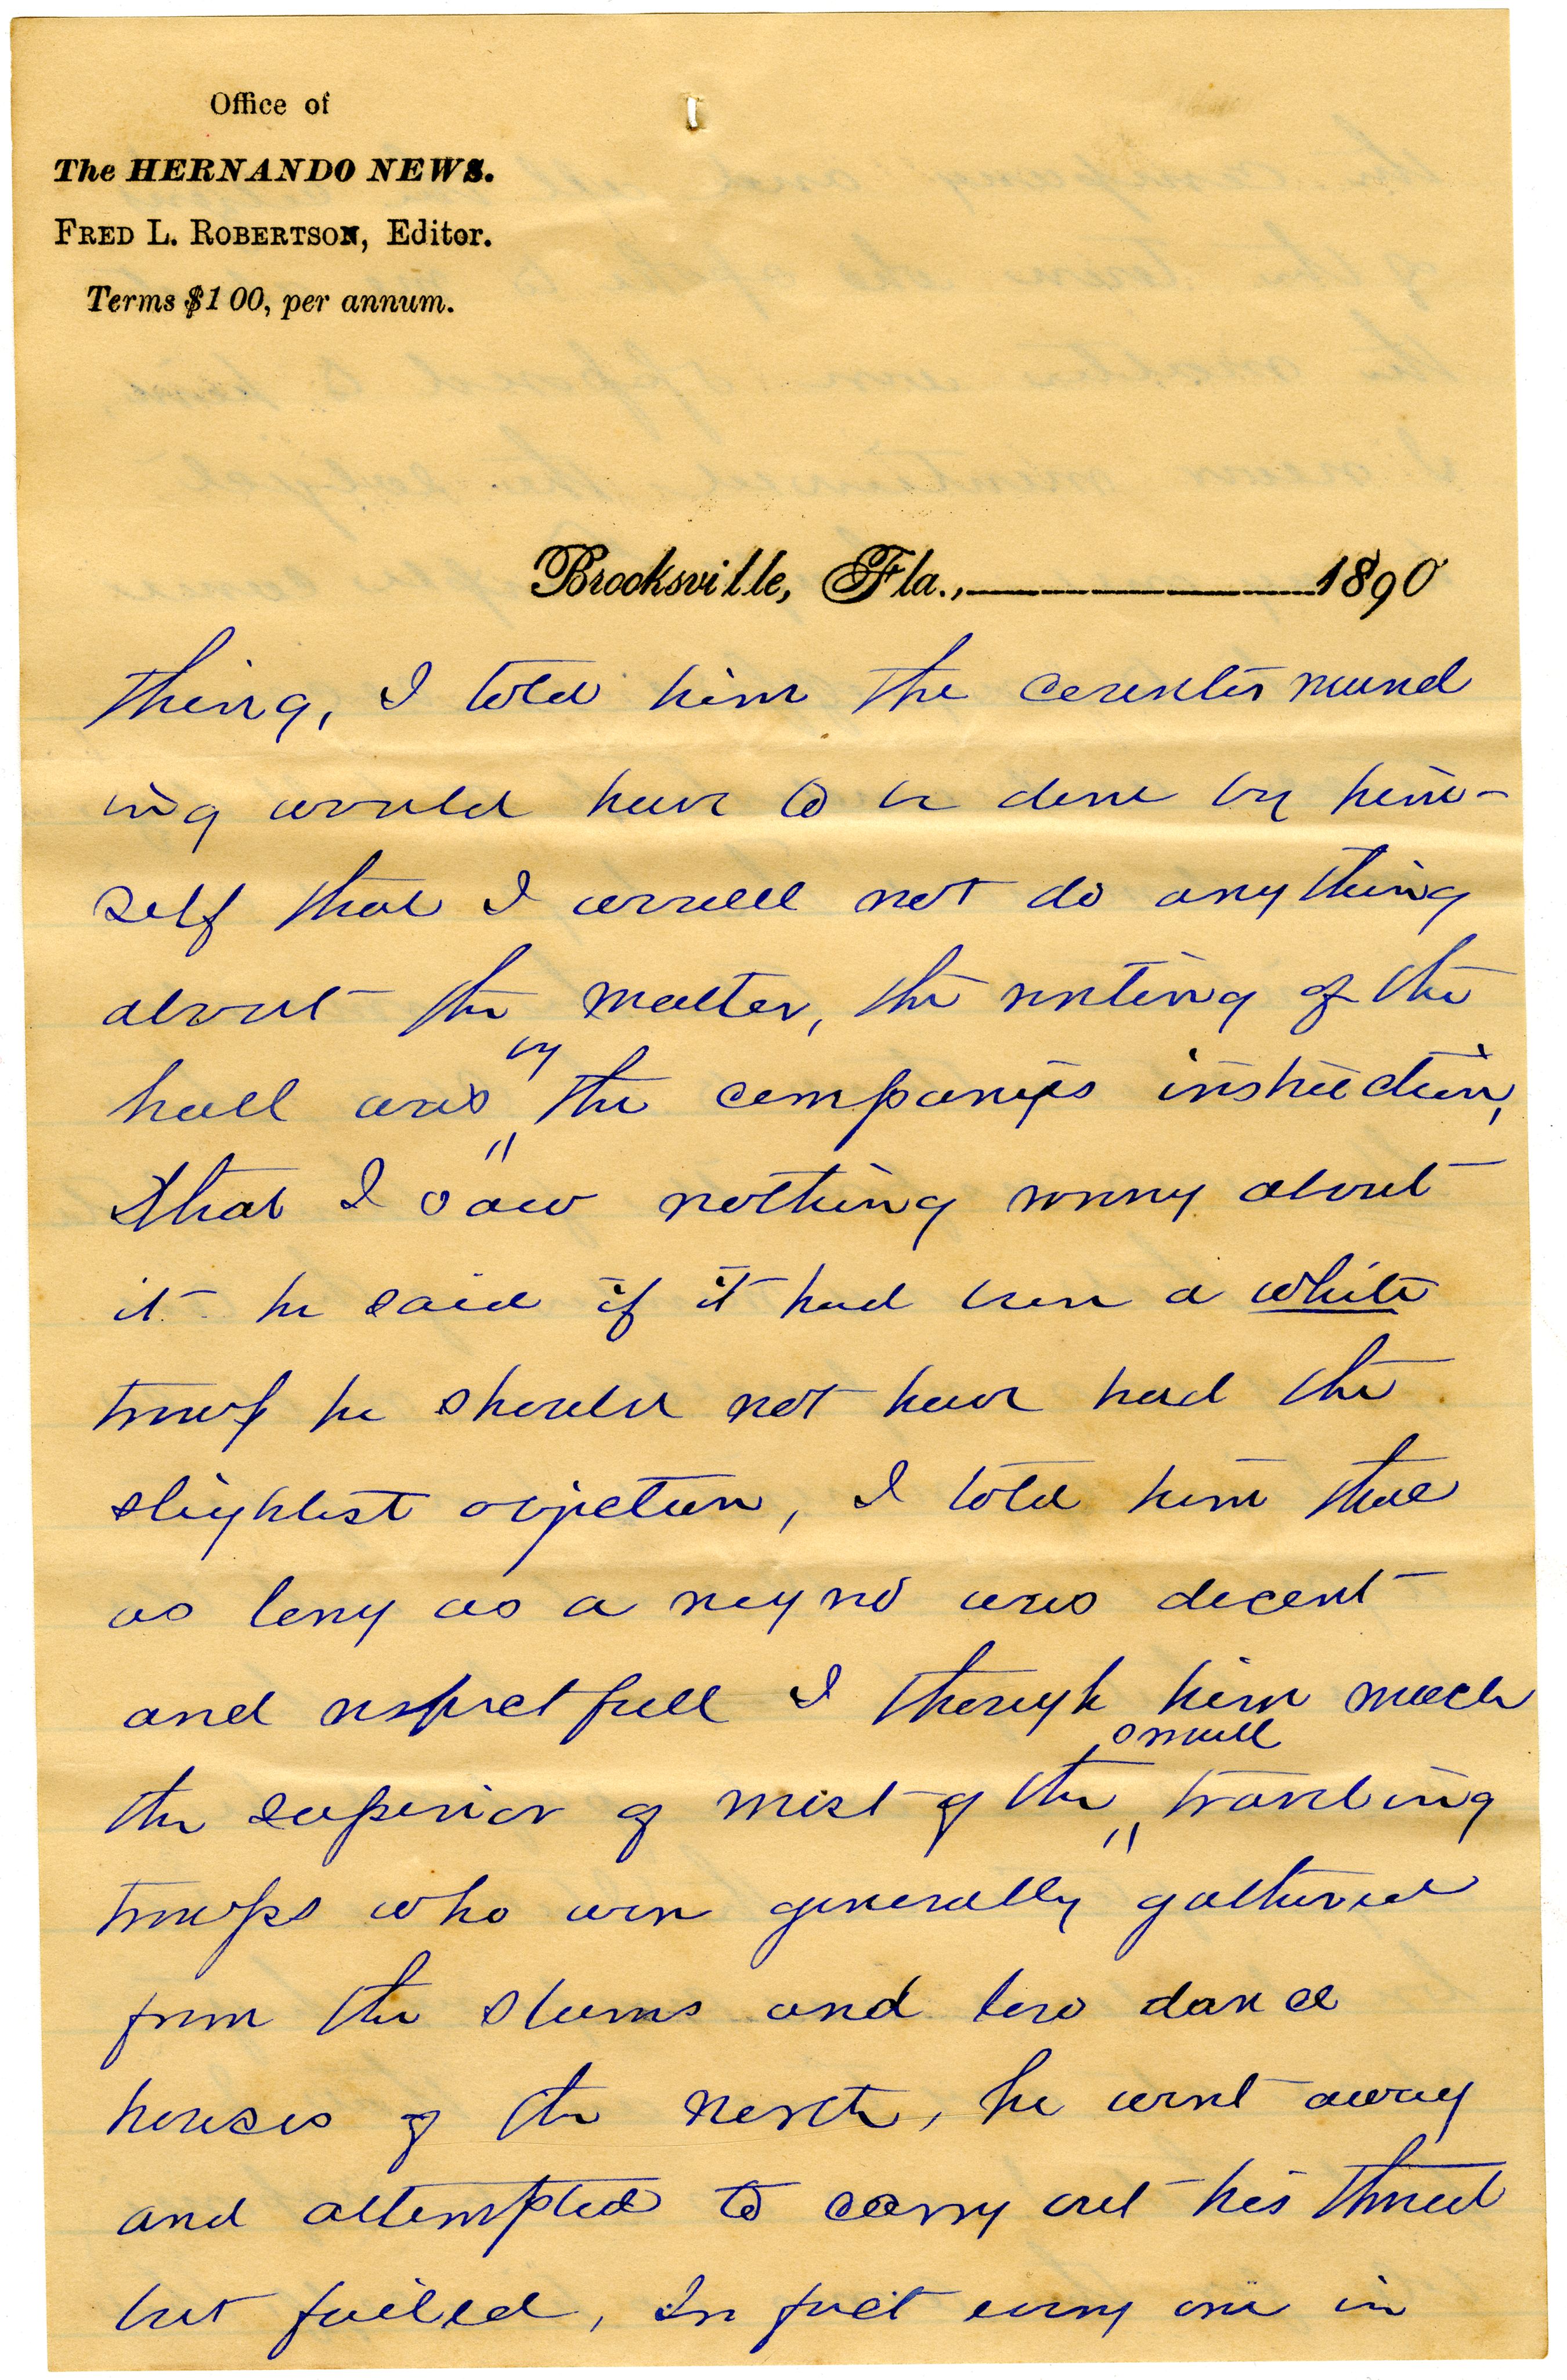 Office of
The HERNANDO NEWS.
FRED L. ROBERTSON, Editor.
Terms $1 00, per annum.
Brooksville, Fla., 1890
thing, I told him the countermand
ing would have to be done by him-
self that I would not do anything
about the matter, the renting of the
by
hall was the companys instruction,
that I saw nothing wrong about
it he said if it had been a white
troup he should not have had the
slightest objection, I told him that
as long as a negro was decent
and respectfull I though him much
small
the superior of most of the traveling
troups who were generally gathered
from the slums and low dance
houses of the north, he went away
and attempted to carry out his threat
but failed, In fact every one in